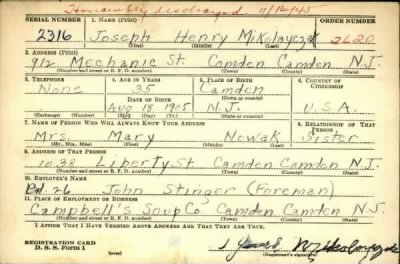 Honorably discharged 11/
SERIAL NUMBER 1. NAME (Print) ORDER NUMBER
2316 Joseph Henry Mikolayczak 2620
(First) (Middle) (Last)
2. ADDRESS (Print)
912 Mechanic St. Camden Camden N.J.
(Number and street or R. F. D. number) (Town) (County) (State)
3. TELEPHONE 4. AGE IN YEARS 5. PLACE OF BIRTH 6. COUNTRY OF CITIZENSHIP
None 35 Camden
DATE OF BIRTH
Aug 18 1905 N.J. U.S.A.
(Mo.) (Day) (Yr.) (State or country)
7. NAME OF PERSON WHO WILL ALWAYS KNOW YOUR ADDRESS 8. RELATIONSHIP OF THAT PERSON
Mrs. Mary Nowak Sister
(Mr., Mrs., Miss) (First) (Middle) (Last)
9. ADDRESS OF THAT PERSON
1038 Liberty St Camden Camden N.J.
(Number and street or R. F. D. number) (Town) (County) (State)
10. EMPLOYER'S NAME
26 John Stinger (Foreman)
11. PLACE OF EMPLOYMENT OR BUSINESS
Campbell's Soup Co. Camden Camden N.J.
(Number and street or R. F. D. number) (Town) (County) (State)
I AFFIRM THAT I HAVE VERIFIED ABOVE ANSWERS AND THAT THEY ARE TRUE.
REGISTRATION CARD
D. S. S. Form 1
Joseph Mikolayczak
(Registrant's signature)